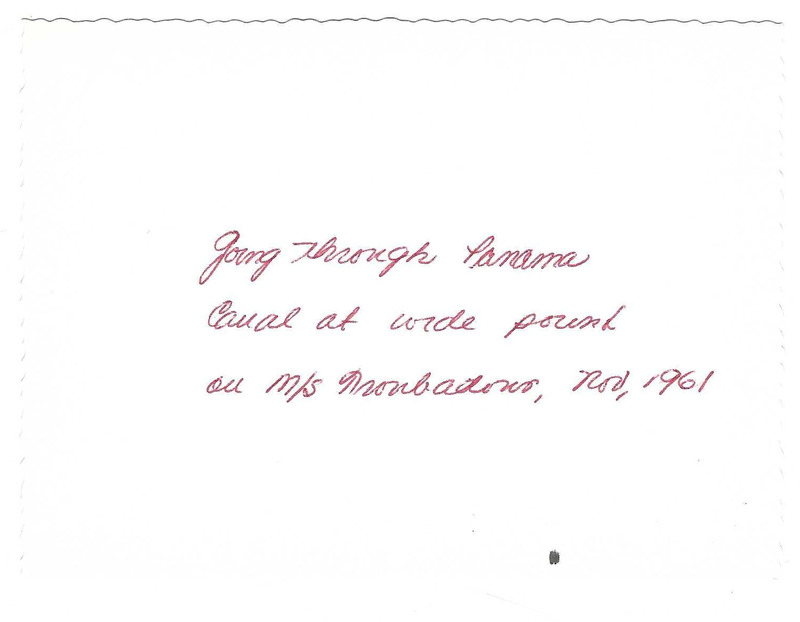 Going through Panama
Canal at wide point
on M/S Troubadour, Nov, 1961